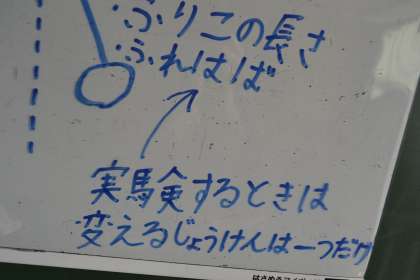 ふりこの長さ
ふれはば
実験するときは
変えるじょうけんは一つだけ